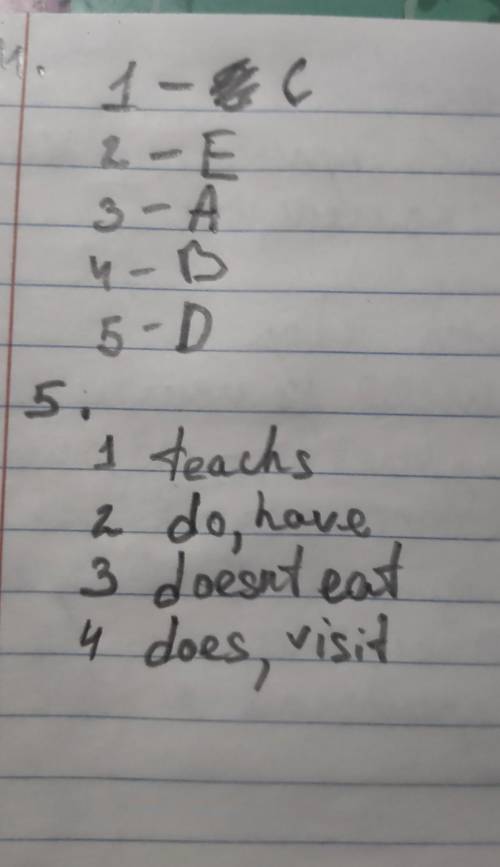 4.
1 - C
2 - E
3 - A
4 - B
5 - D
5.
1 teachs
2 do, have
3 doesnt eat
4 does, visit